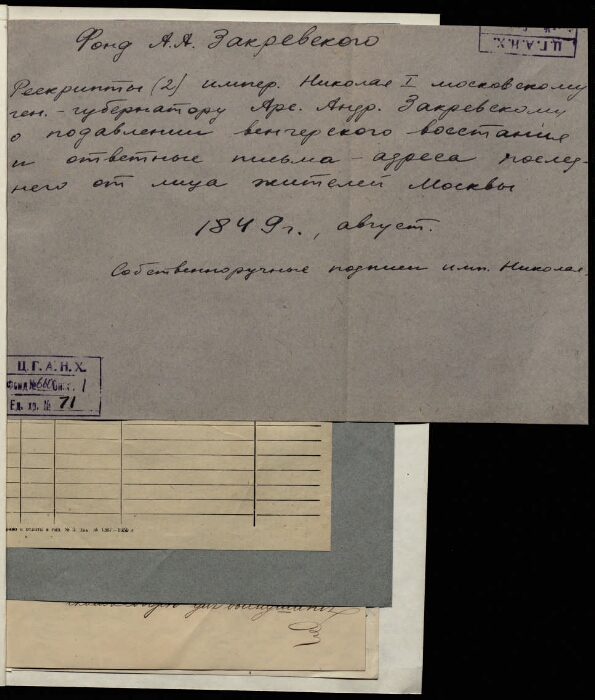 Фонд А.А. Закревского
Ц.Г.А.Н.Х.
Рескрипты (2) импер. Николая I московскому
ген.-губернатору Арс. Андр. Закревскому
о подавлении венгерского восстания
и ответные письма-адреса послед-
него от лица жителей Москвы
1849 г., август.
Собственноручные подписи имп. Николая
Ц.Г.А.Н.Х.
Фонд № оп. 1
Ед. хр. № 71